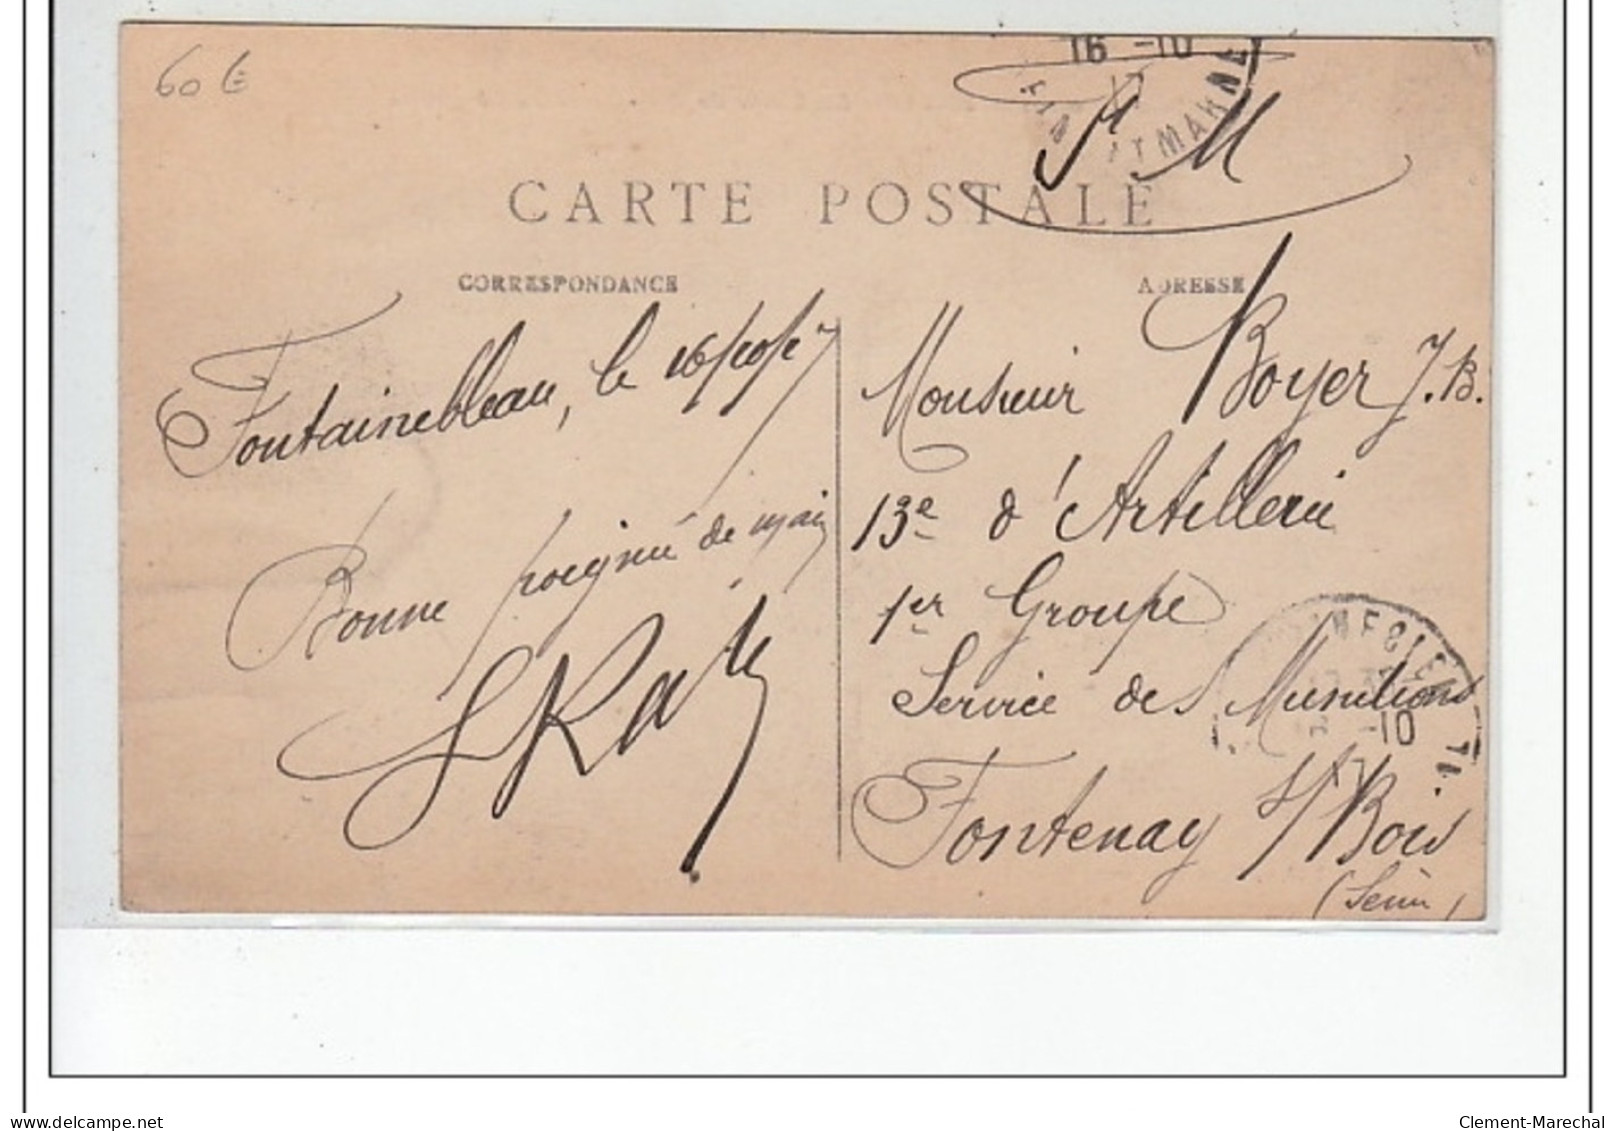 60 €
16 -10
17
ET MARNE
F M
CARTE POSTALE
CORRESPONDANCE
ADRESSE
Fontainebleau, le 16/10/17
Bonne poignée de main
Monsieur Boyer J.B.
13e d'Artillerie
1er Groupe
Service des Munitions
Fontenay s/ Bois
(Seine)
-10
delcampe.net
Clement-Marechal